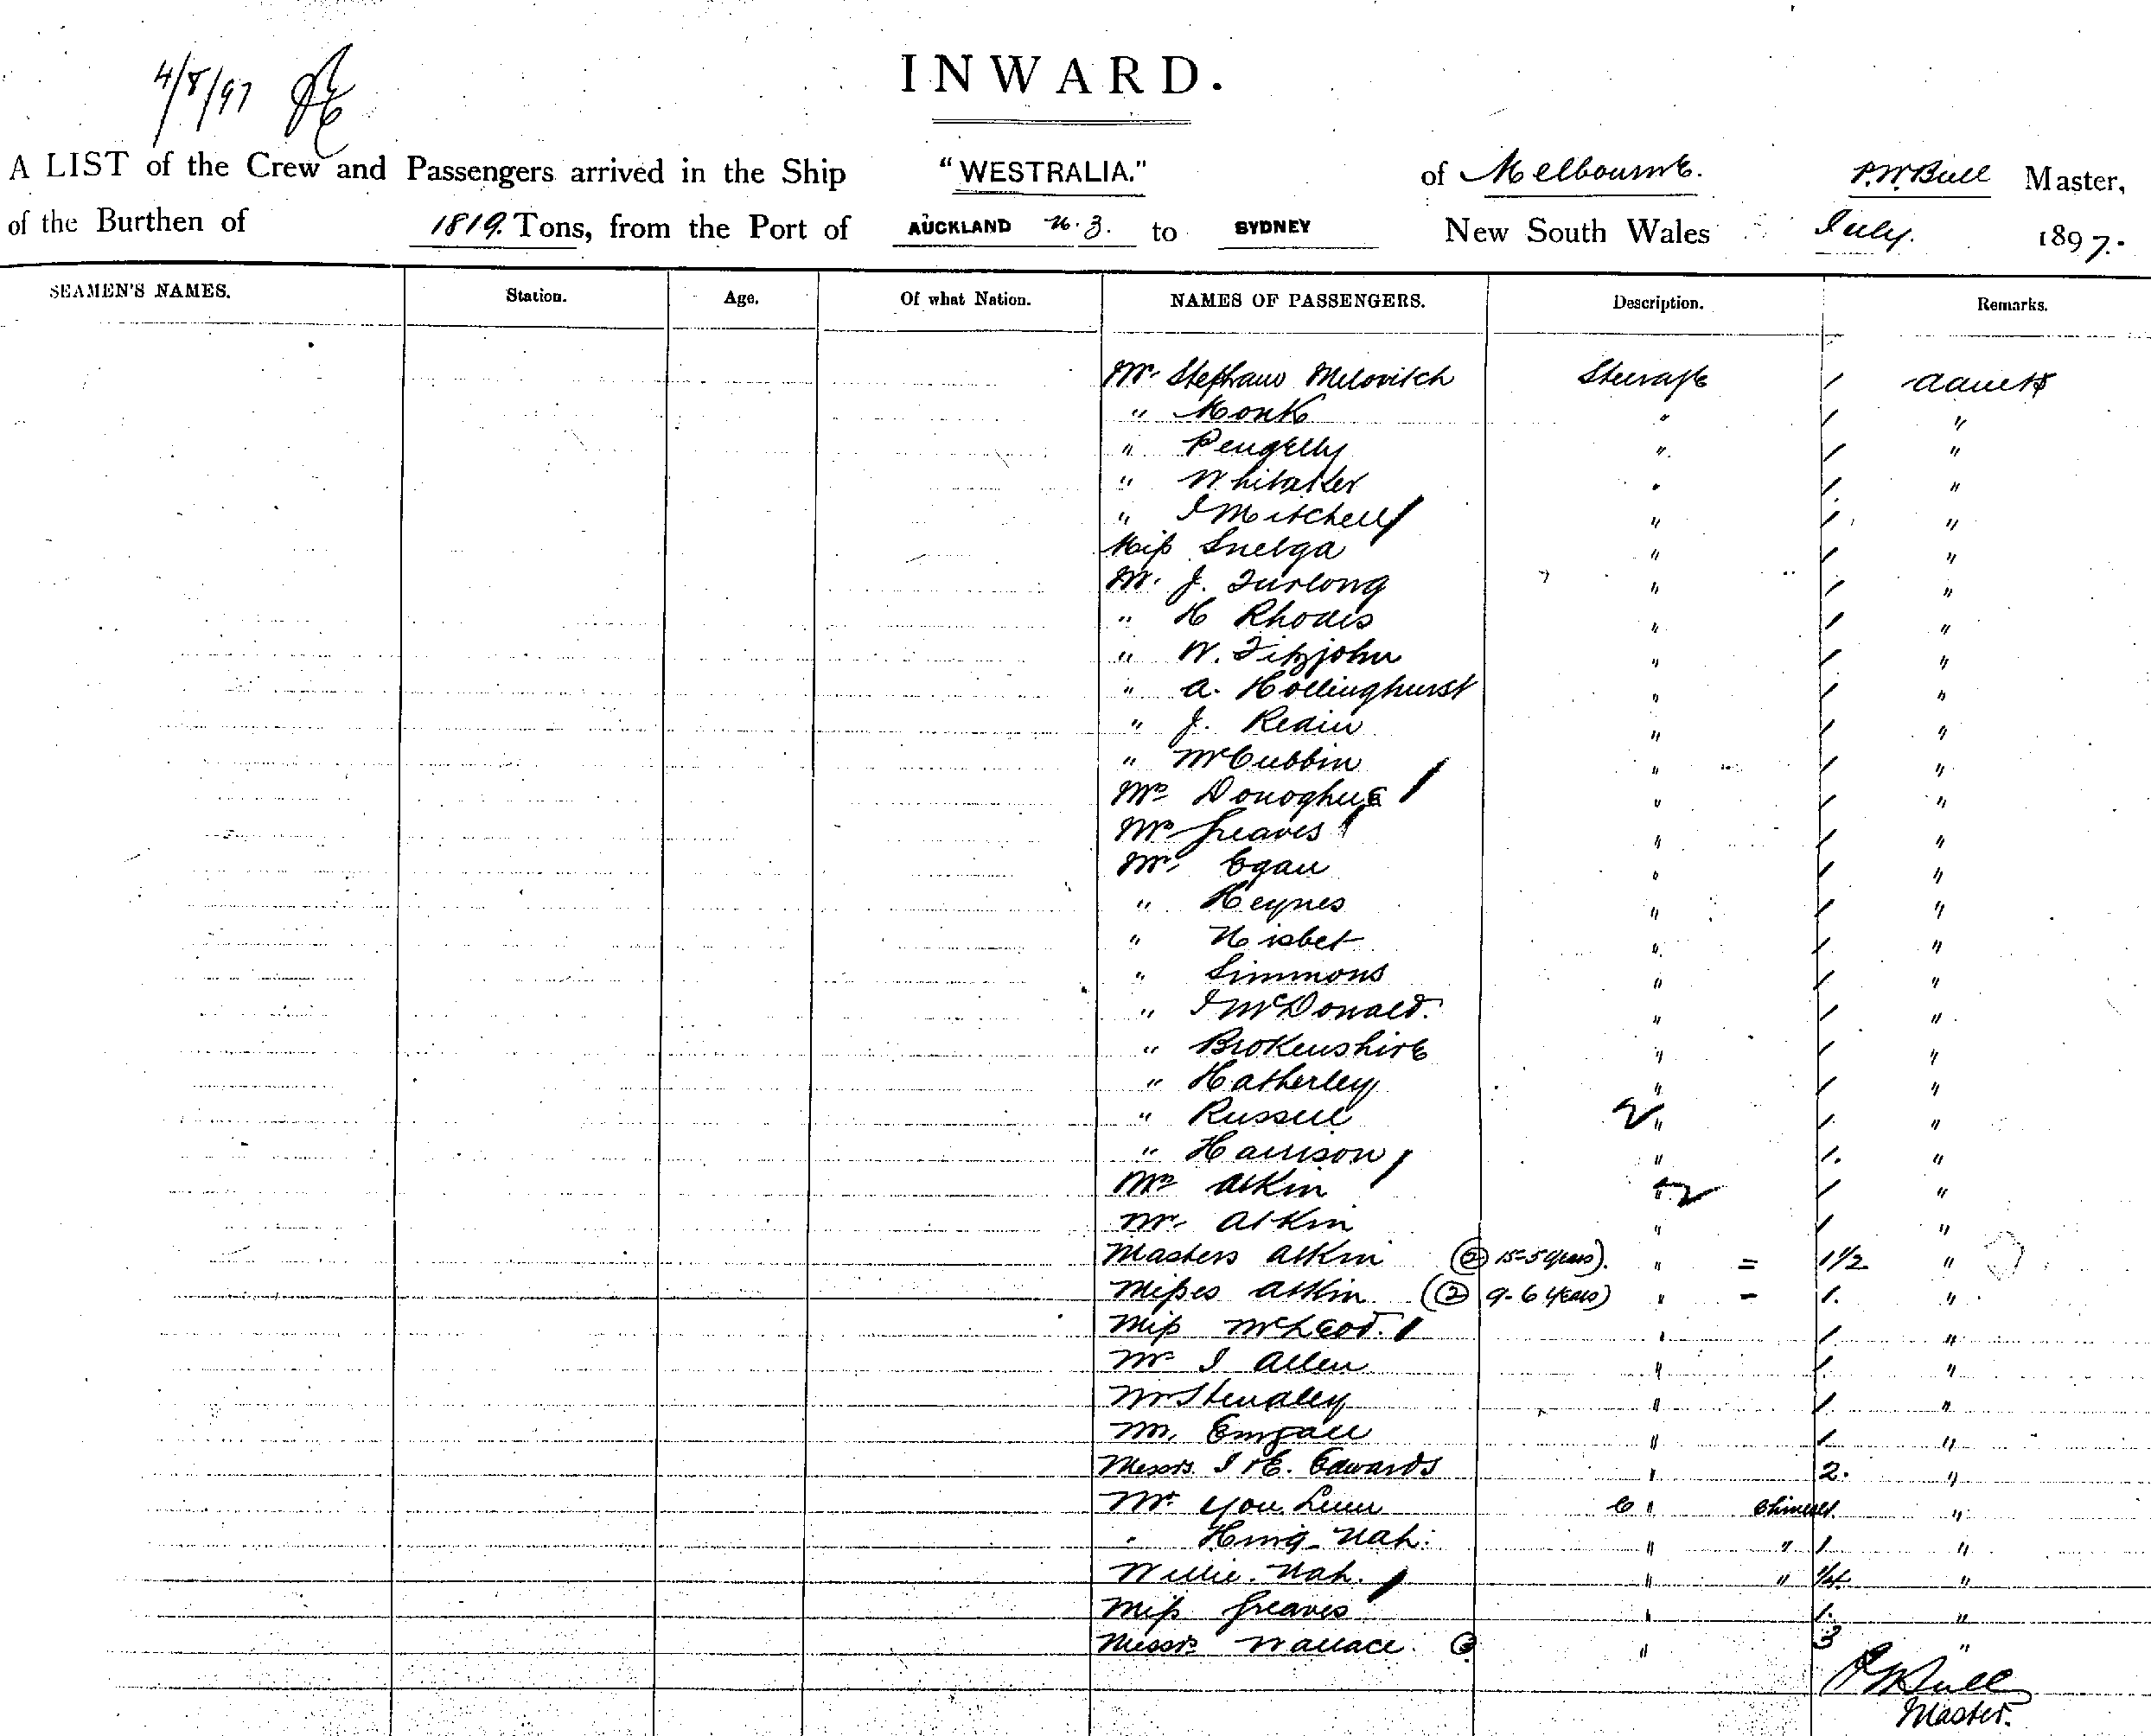 4/8/97
INWARD.
A LIST of the Crew and Passengers arrived in the Ship "WESTRALIA." of Melbourne. P.W. Bull Master,
of the Burthen of 1819. Tons, from the Port of AUCKLAND N.Z. to SYDNEY New South Wales July. 1897.
SEAMEN'S NAMES. Station. Age. Of what Nation. NAMES OF PASSENGERS. Description. Remarks.
Mr. Milovitch Steerage / adults
" Monk " / "
" Pengelly " / "
" Whitaker " / "
" I Mitchell " / "
Miss Snelga " / "
Mr. J. Furlong " / "
" H Rhodes " / "
" W. Fitzjohn " / "
" A. Hollinghurst " / "
" J. Redin " / "
" McCubbin " / "
Mrs Donoghue " / "
Mrs Greaves " / "
Mr. Egan " / "
" Heynes " / "
" Nisbet " / "
" Simmons " / "
" I McDonald. " / "
" Brokenshire " / "
" Hatherley " / "
" Russell " / "
" Harrison " / "
Mrs Atkin " / "
Mr. Atkin " / "
Masters Atkin (2) 15-5 years). " = 1 1/2 "
Misses Atkin (2) 9-6 years) " - 1. "
Miss McLeod. " / "
Mr I Allen " / "
Mr Studley " / "
Mr. " / "
Messrs. I & E. Edwards " 2. "
Mr. You Lum " Chinese. "
" Hing Nah. " " 1 "
Willie. Nah. " " 1/4 "
Miss Greaves " 1. "
Messrs. Wallace. (3) " 3 "
P W Bull
Master.